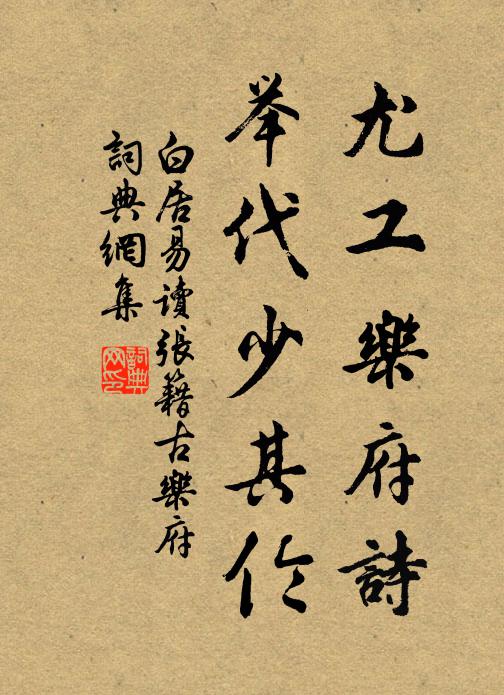 尤工樂府詩
举代少其伦
白居易讀張籍古樂府
詞典網集
詞典
网印